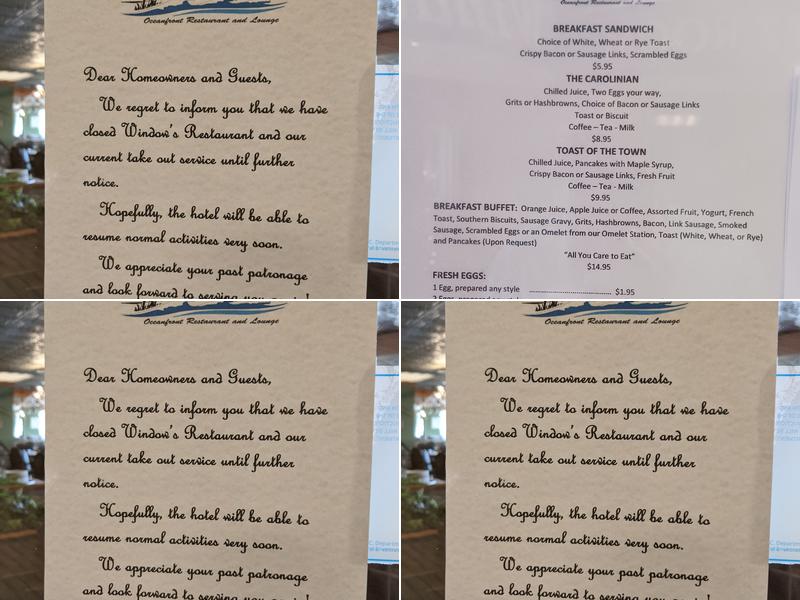 Oceanfront Restaurant and Lounge
Dear Homeowners and Guests,
We regret to inform you that we have
closed Window's Restaurant and our
current take out service until further
notice.
Hopefully, the hotel will be able to
resume normal activities very soon.
We appreciate your past patronage
and look forward to serving
Oceanfront Restaurant and Lounge
BREAKFAST SANDWICH
Choice of White, Wheat or Rye Toast
Crispy Bacon or Sausage Links, Scrambled Eggs
$5.95
THE CAROLINIAN
Chilled Juice, Two Eggs your way,
Grits or Hashbrowns, Choice of Bacon or Sausage Links
Toast or Biscuit
Coffee – Tea - Milk
$8.95
TOAST OF THE TOWN
Chilled Juice, Pancakes with Maple Syrup,
Crispy Bacon or Sausage Links, Fresh Fruit
Coffee – Tea - Milk
$9.95
BREAKFAST BUFFET: Orange Juice, Apple Juice or Coffee, Assorted Fruit, Yogurt, French
Toast, Southern Biscuits, Sausage Gravy, Grits, Hashbrowns, Bacon, Link Sausage, Smoked
Sausage, Scrambled Eggs or an Omelet from our Omelet Station, Toast (White, Wheat, or Rye)
and Pancakes (Upon Request)
"All You Care to Eat"
$14.95
FRESH EGGS:
1 Egg, prepared any style ........................................ $1.95
Oceanfront Restaurant and Lounge
Dear Homeowners and Guests,
We regret to inform you that we have
closed Window's Restaurant and our
current take out service until further
notice.
Hopefully, the hotel will be able to
resume normal activities very soon.
We appreciate your past patronage
and look forward to serving
Oceanfront Restaurant and Lounge
Dear Homeowners and Guests,
We regret to inform you that we have
closed Window's Restaurant and our
current take out service until further
notice.
Hopefully, the hotel will be able to
resume normal activities very soon.
We appreciate your past patronage
and look forward to serving